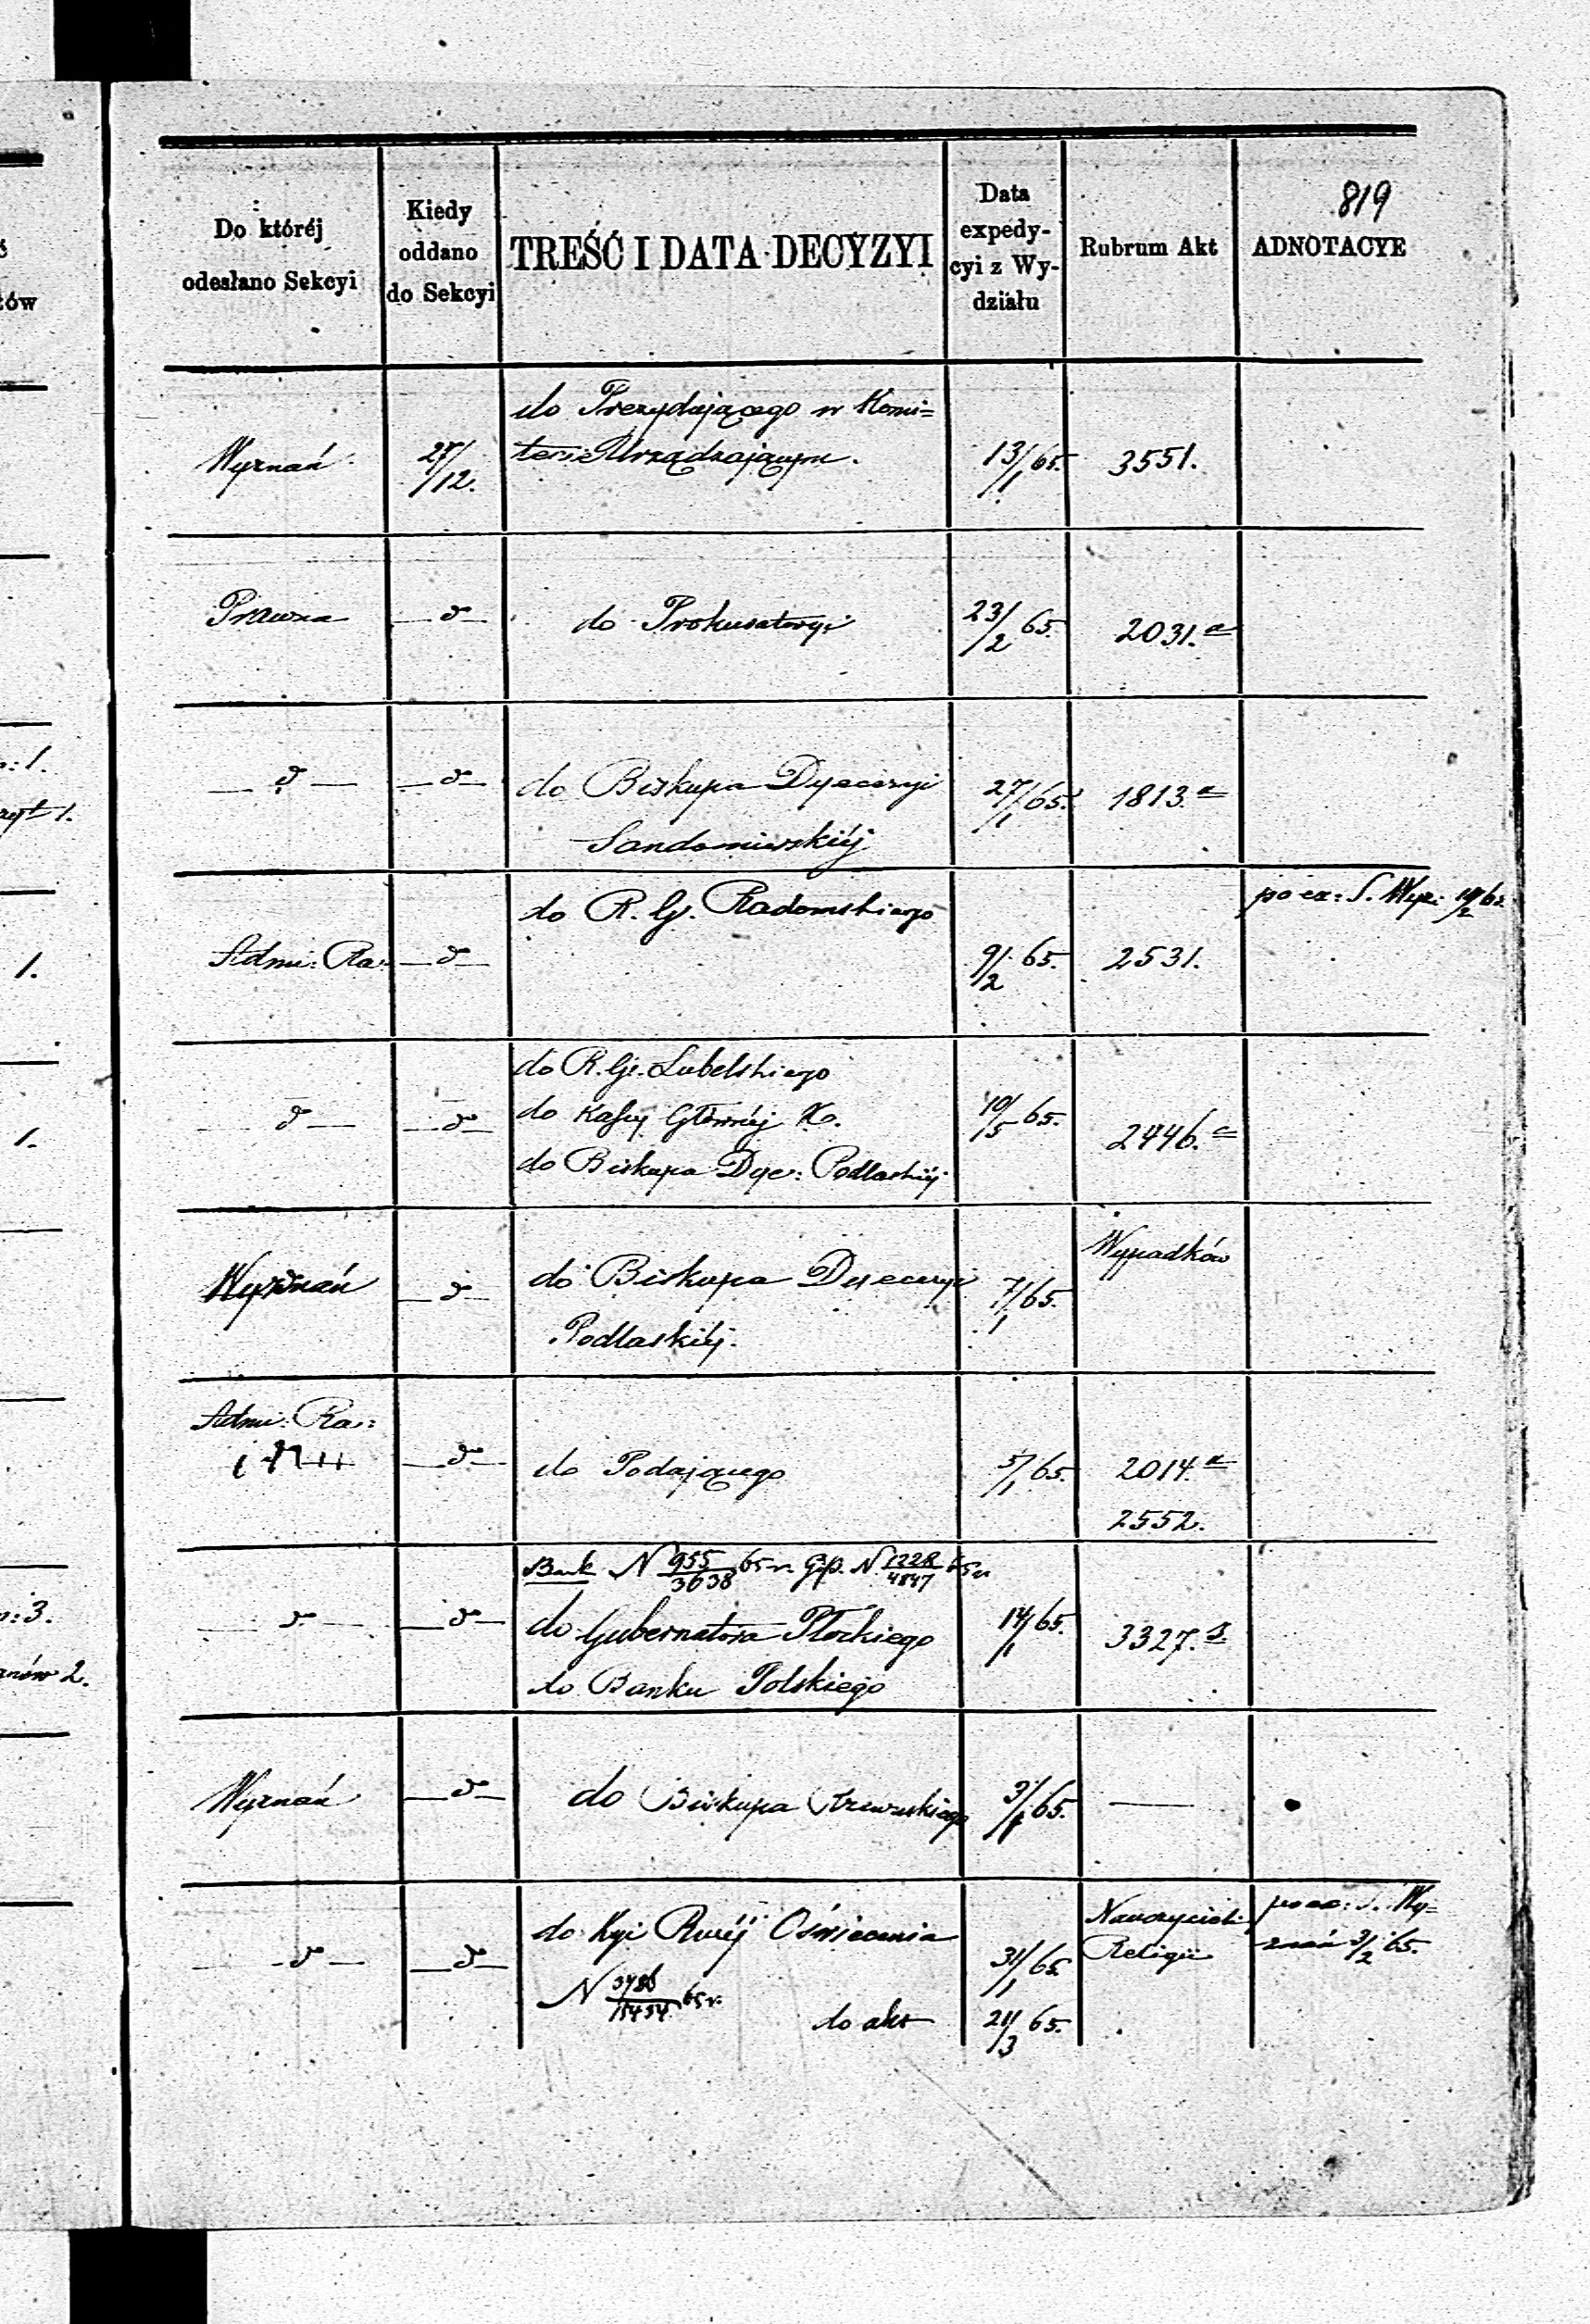 819
Do któréj
odesłano Sekcyi
Kiedy
oddano
do Sekcyi
TREŚĆ I DATA DECYZYI
Data
expedy-
cyi z Wy-
działu
Rubrum Akt
ADNOTACYE
ów
do Prezydującego w Komi=
Wyznań
/12.
tecie Urządzającym.
13/1 65.
3551.
Prawna
d°
do Prokuratoryi
23/2 65.
2031.a
d°
d°
do Biskupa Dyecezyi
Sandomierskiéj
27/1 65.
1813.a
do R. G. Radomskiego
Admi: Ra:
d°
9/2 65.
2531.
po ex: S. Wyz:
do R. G. Lubelskiego
d°
d°
do Kassy Głównéj K.
do Biskupa Dye: Podlaskiéj
10/5 65.
2446.a
Wyznań
d°
do Biskupa Dyecezyi
Podlaskiéj.
7/1 65.
Wypadków
Admi: Ra:
d°
do Podającego
5/1 65.
2014.a
2552.
Bank N 955/3638 65 r. N. 1228/4847 65 r
d°
d°
do Gubernatora Płockiego
do Banku Polskiego
14/1 65.
3327.
Wyznań
d°
do Biskupa Rzewuskiego
65.
—
d°
d°
do Kyi Rwéj Oświecenia
N 65 r.
do akt
31/1 65.
21/3 65.
Nauczyciele
Religii
po ex: S. Wy=
znań 3/2 65.
1.
1.
1.
: 3.
2.